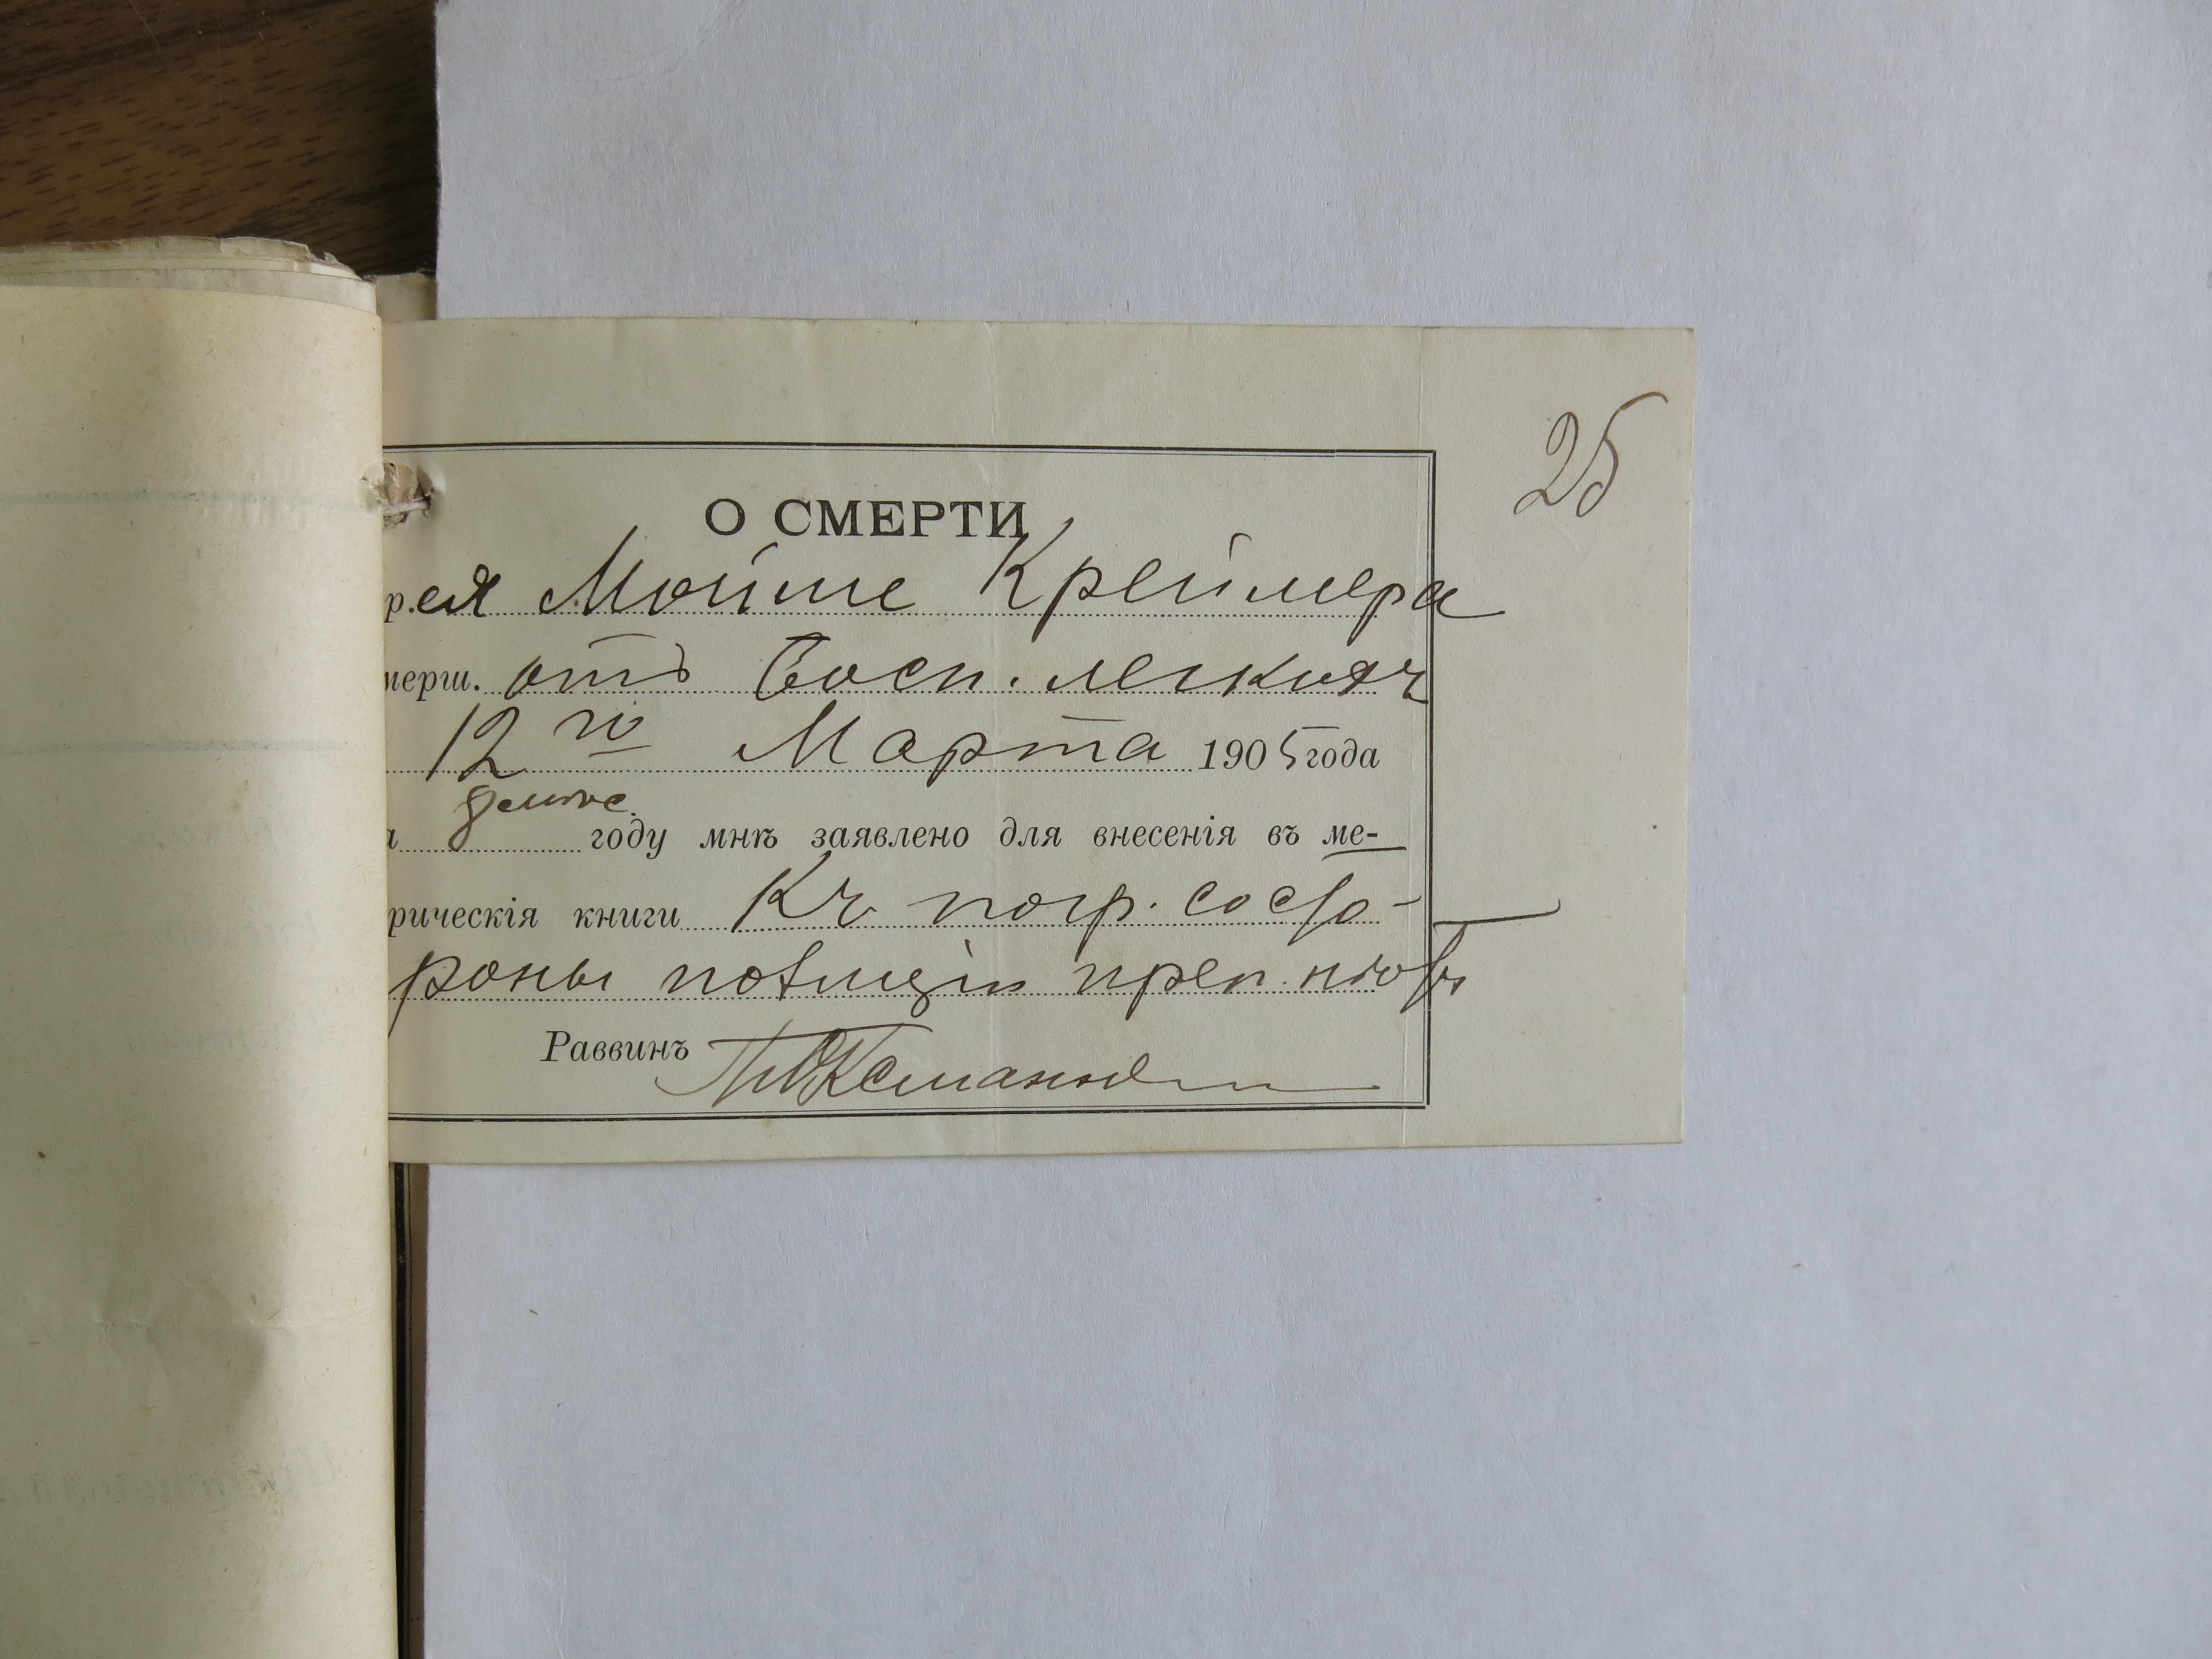 25
О СМЕРТИ
р.ея Мойше Креймера
мерш. отъ Восп. легкихъ
12го Марта 1905 года
году мнѣ заявлено для внесенія въ ме-
рическія книги Къ погр. со сто-
роны полиціи преп. нѣтъ
Раввинъ